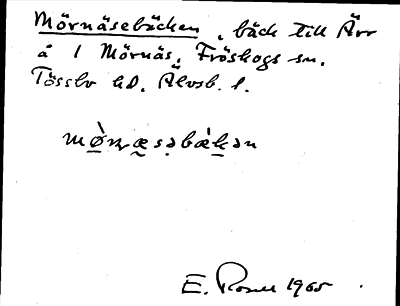 Mörnäsebäcken, bäck till Ärr
å i Mörnäs, Fröskogs sn.
Tössbo hd. Älvsb. l.
mø̀ɳæsəbæ̀kən
E. Rosell 1965